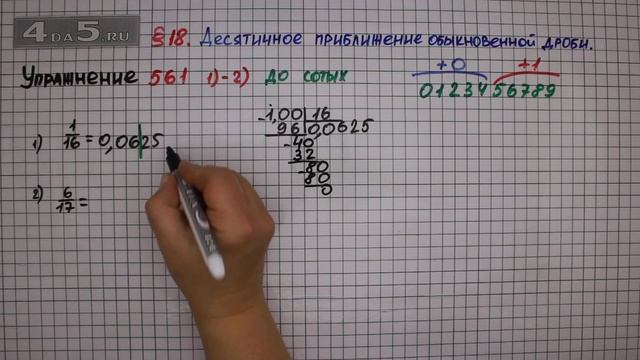 4DA5.RU
§18. Десятичное приближение обыкновенной дроби.
Упражнение 561 1)-2) до сотых
+0 +1
0 1 2 3 4 5 6 7 8 9
1) 1/16 = 0,0625
1,00 | 16
96 | 0,0625
40
32
80
80
0
2) 6/17 =